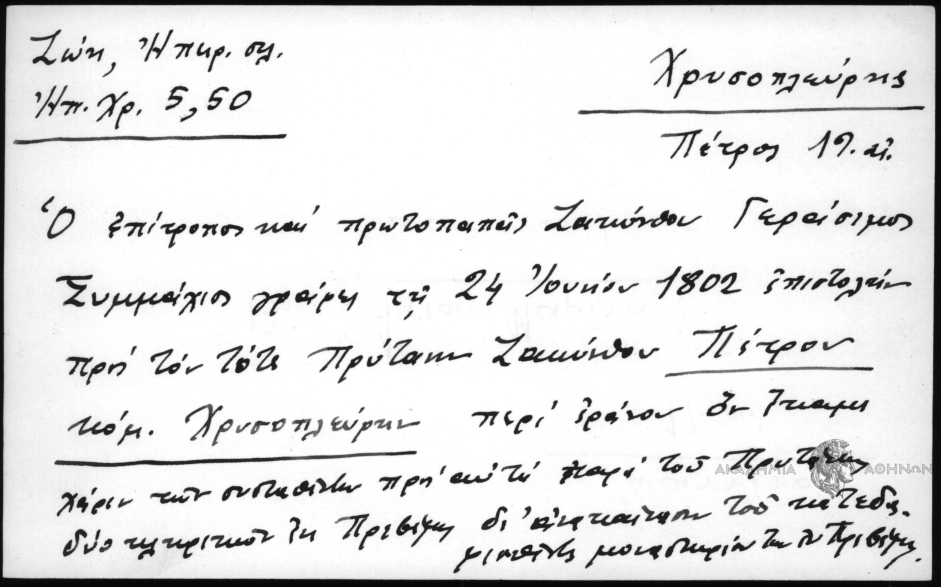 Ζώη, Ἠπειρ. σλ.
Ἠπ. Χρ. 5, 50
Χρυσοπλεύρης
Πέτρος 19. αἰ.
Ὁ ἐπίτροπος καί πρωτοπαπᾶς Ζακύνθου Γεράσιμος
Συμμάχιος γράφει τῇ 24 Ἰουνίου 1802 ἐπιστολήν
πρός τόν τότε Πρύτανιν Ζακύνθου Πέτρον
κόμ. Χρυσοπλεύρην περί ἐράνου ὅν ἔκαμε
χάριν τῶν συσταθέντων πρός αὐτό παρά τοῦ Πρυτάνεως
δύο κληρικῶν ἐκ Πρεβέζης δι' ἀνακαίνισιν τοῦ κατεδα-
μισθέντος μοναστηρίου των ἐν Πρεβέζῃ.
ΑΚΑΔΗΜΙΑ ΑΘΗΝΩΝ